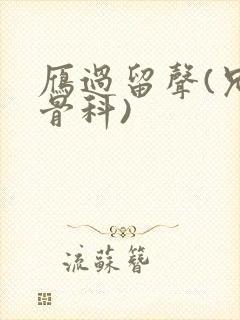 雁過留聲(兄
骨科)
流蘇簪